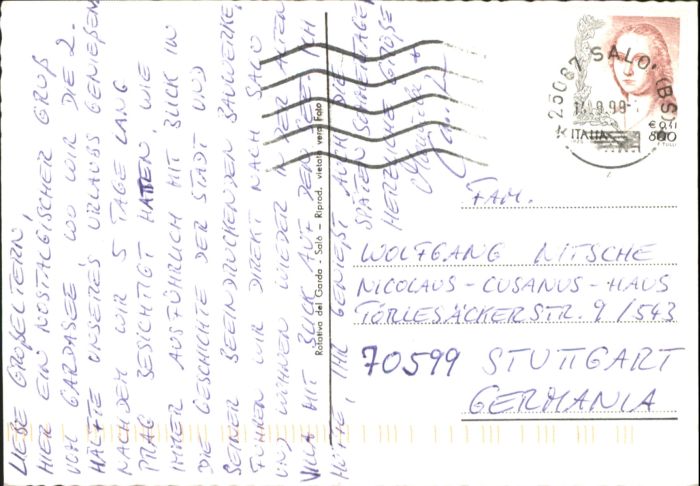 LIEBE GROßELTERN,
HIER EIN NOSTALGISCHER GRUß
VOM GARDASEE, WO WIR DIE 2.
HÄLFTE UNSERES URLAUBS GENIEßEN
NACHDEM WIR 5 TAGE LANG
PRAG BESICHTIGT HATTEN WIE
IMMER AUSFÜHRLICH MIT BLICK IN
DIE GESCHICHTE DER STADT UND
SEINER BEEINDRUCKENDEN BAUWERKE,
FUHREN WIR DIREKT NACH SALO
UND WOHNEN WIEDER IN DER ALTEN
VILLA MIT BLICK AUF DEN SEE. ICH
HOFFE, IHR GENIEßT AUCH DIE
SPÄTEN SOMMERTAGE
HERZLICHE GRÜßE
Rotativa del Garda - Salò - Riprod. vietata vera Foto
25087 SALO' (BS)
11.9.99
ITALIA
€ 0,41
800
FAM.
WOLFGANG NITSCHE
NICOLAUS-CUSANUS-HAUS
TÖRLESÄCKERSTR. 9/543
70599 STUTTGART
GERMANIA